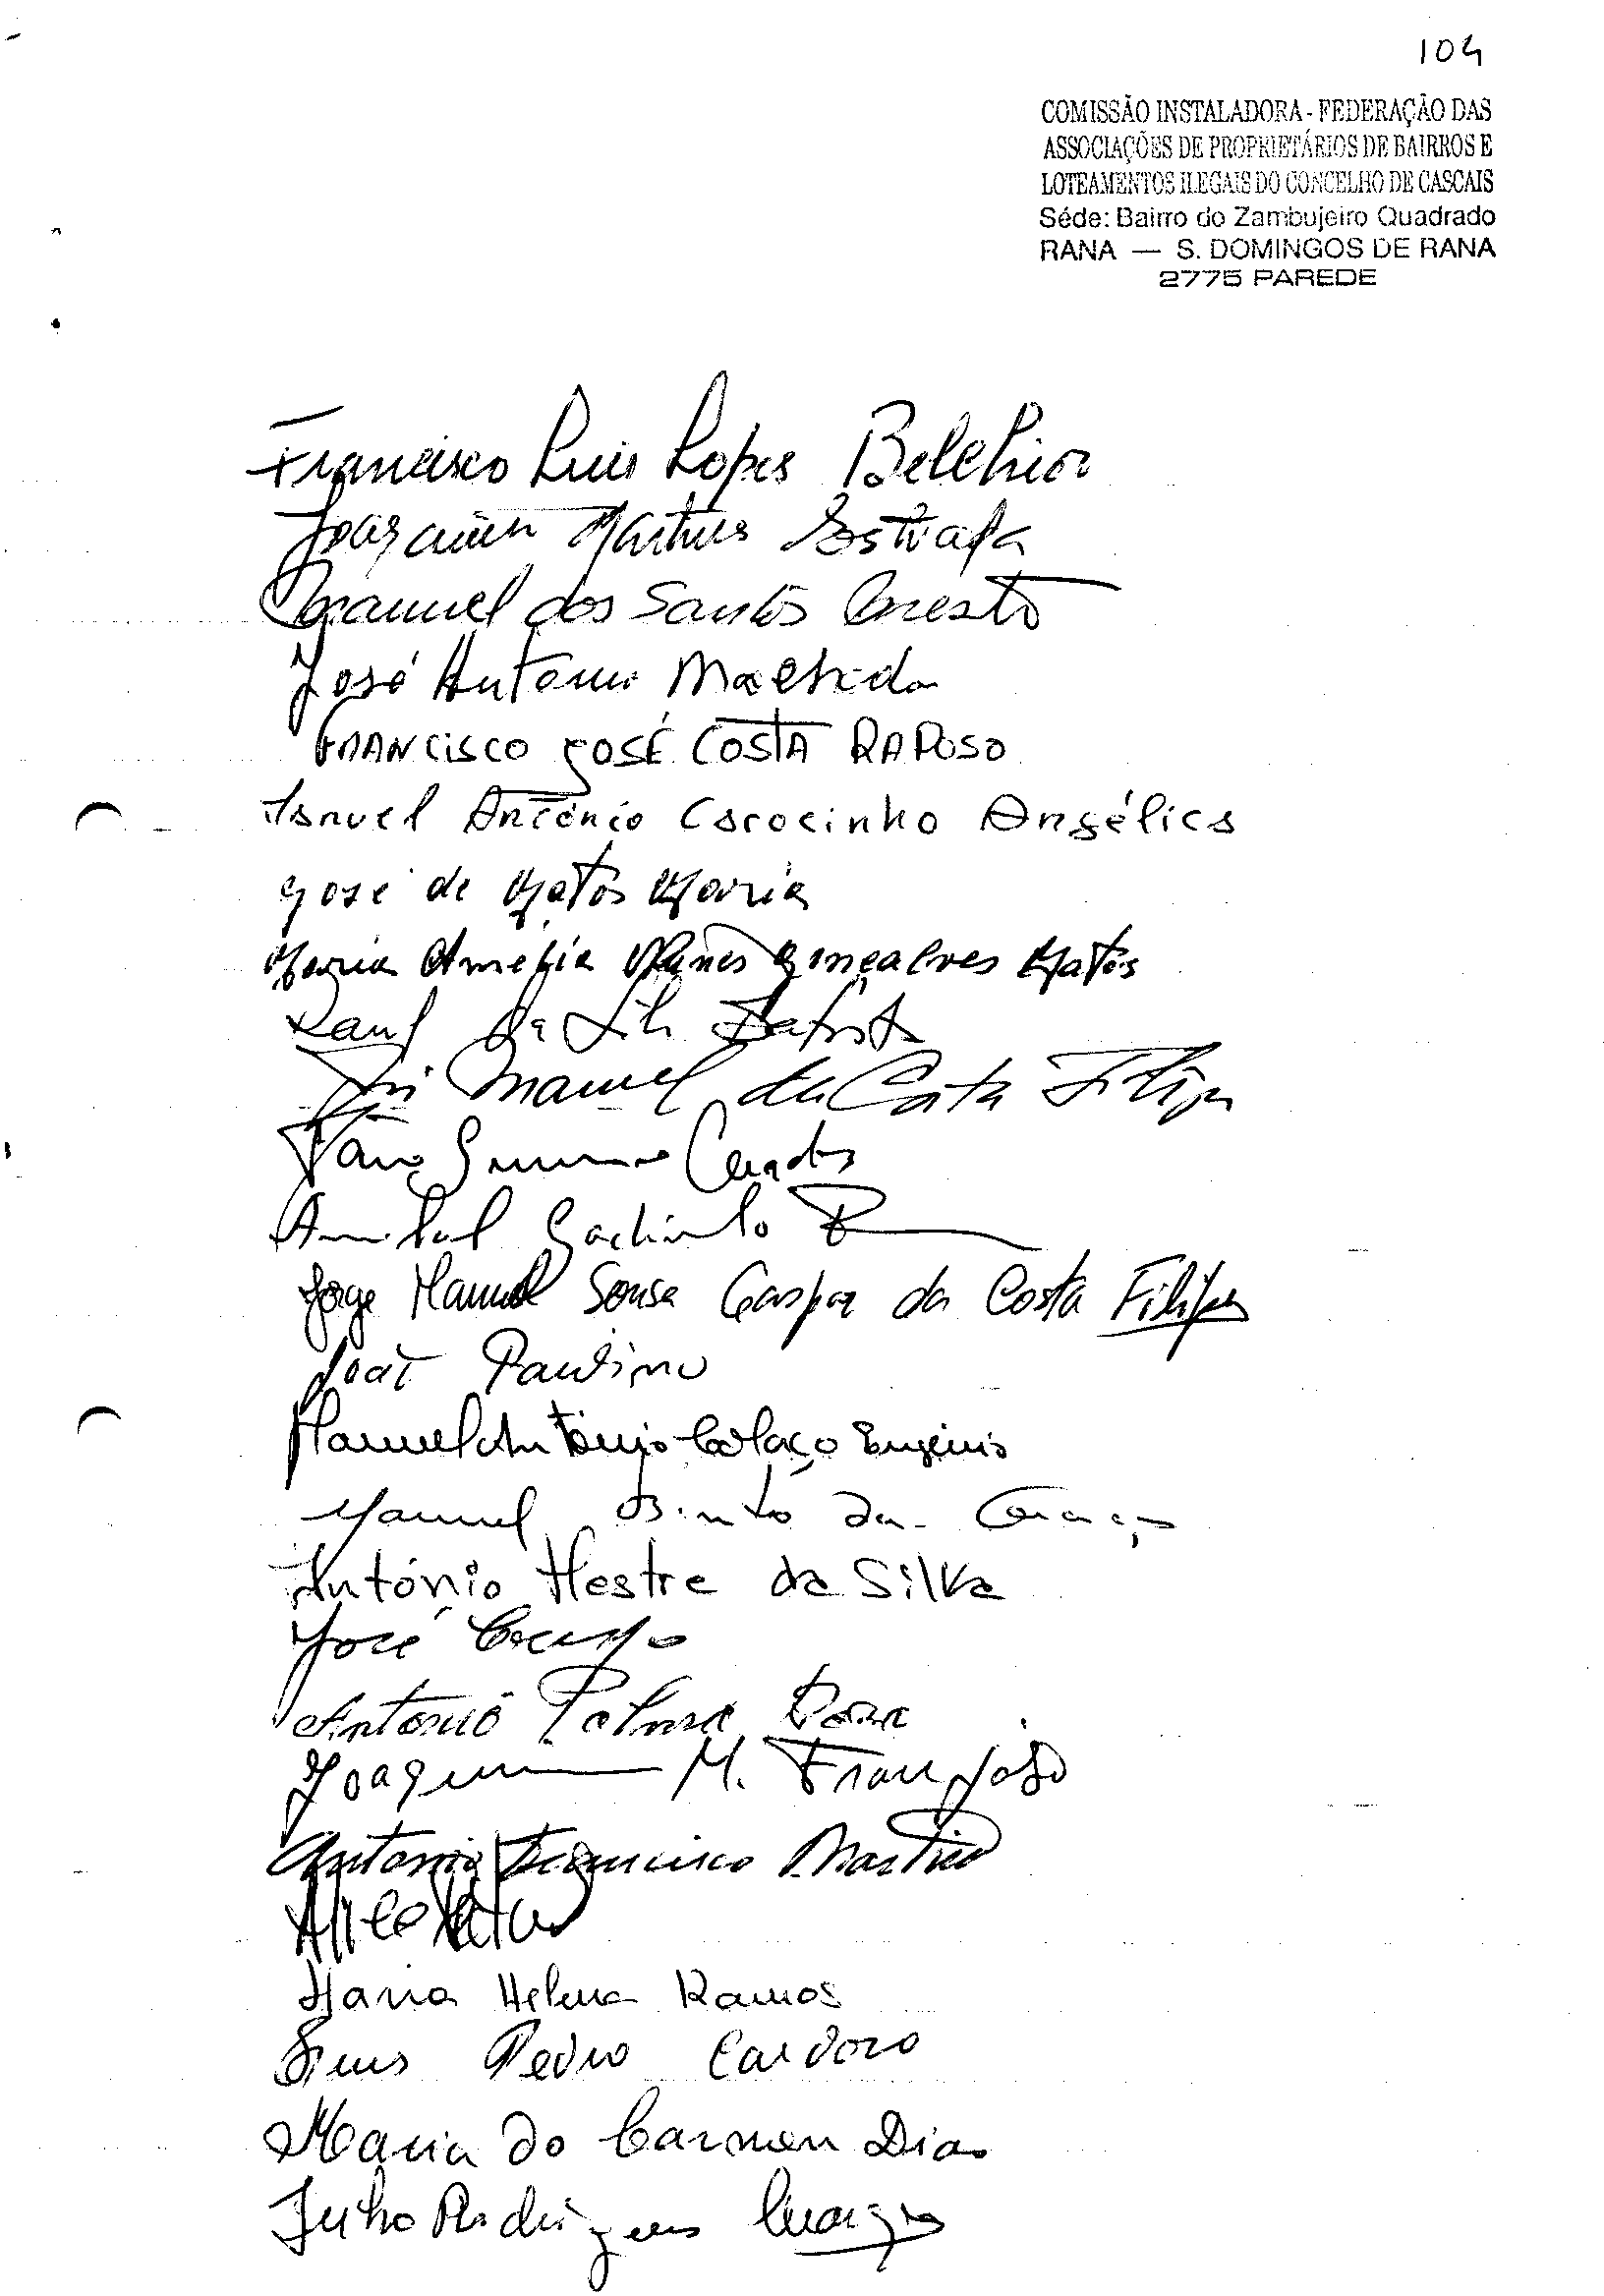 104
COMISSÃO INSTALADORA - FEDERAÇÃO DAS
ASSOCIAÇÕES DE PROPRIETÁRIOS DE BAIRROS E
LOTEAMENTOS ILEGAIS DO CONCELHO DE CASCAIS
Séde: Bairro do Zambujeiro Quadrado
RANA — S. DOMINGOS DE RANA
2775 PAREDE
Francisco Luis Lopes Belchior
Joaquim Martins Estrada
Manuel dos Santos
José António Machado
FRANCISCO JOSÉ COSTA RAPOSO
Manuel António Carocinho Angélica
José de Matos Maria
Maria Amelia Nunes Gonçalves Matos
Raul da Batista
José Manuel da Costa Filipe
Anibal
Jorge Manuel Sousa Gaspar da Costa Filipe
João Paulino
Manuel António Colaço Eugénio
Manuel da
António Mestre da Silva
José
António Palma Rosa
Joaquim M. Franjoso
Antonio Francisco Martins
Maria Helena Ramos
Luis Pedro Cardoso
Maria do Carmen Dias
Julho Rodrigues